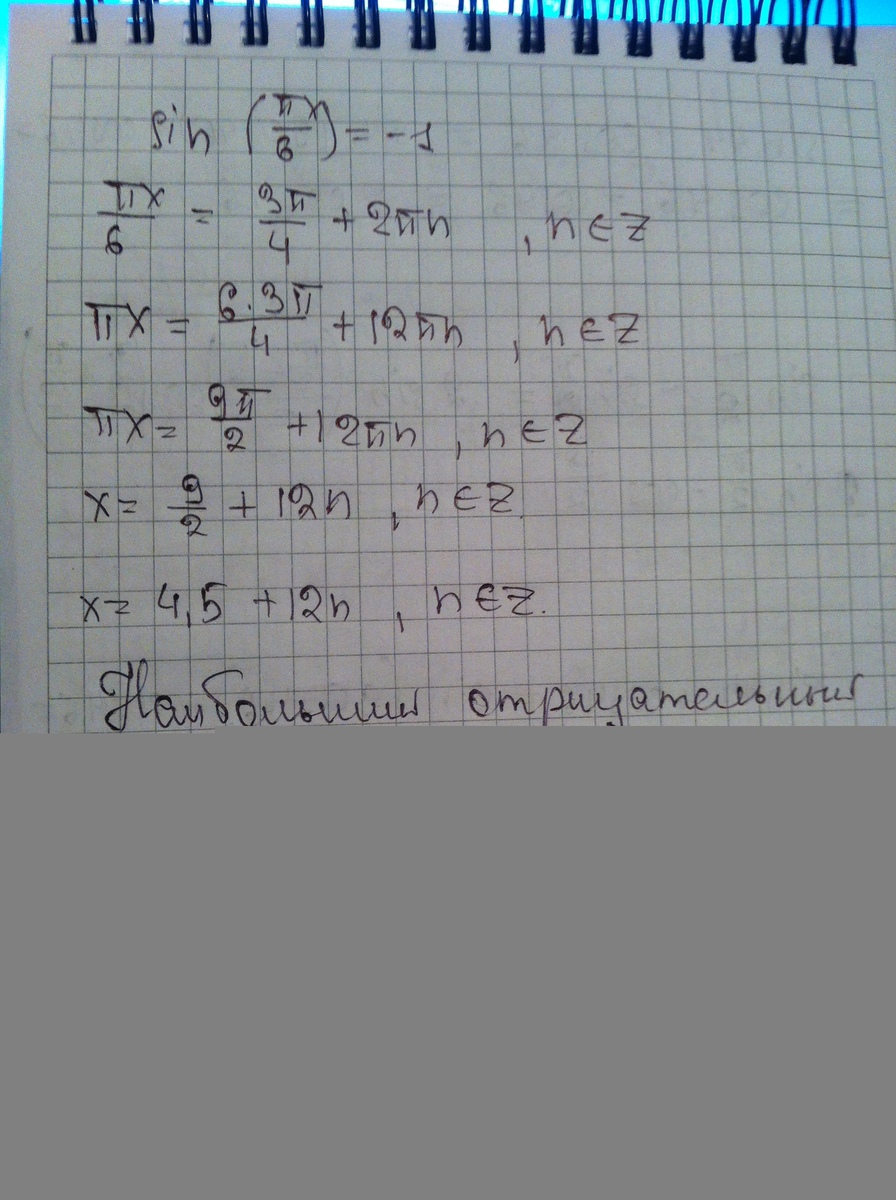 sin (πx/6) = -1
πx/6 = 3π/4 + 2πn , n ∈ Z
πx = 6·3π/4 + 12πn , n ∈ Z
πx = 9π/2 + 12πn , n ∈ Z
x = 9/2 + 12n , n ∈ Z.
x = 4,5 + 12n , n ∈ Z.
Наибольший отрицательный